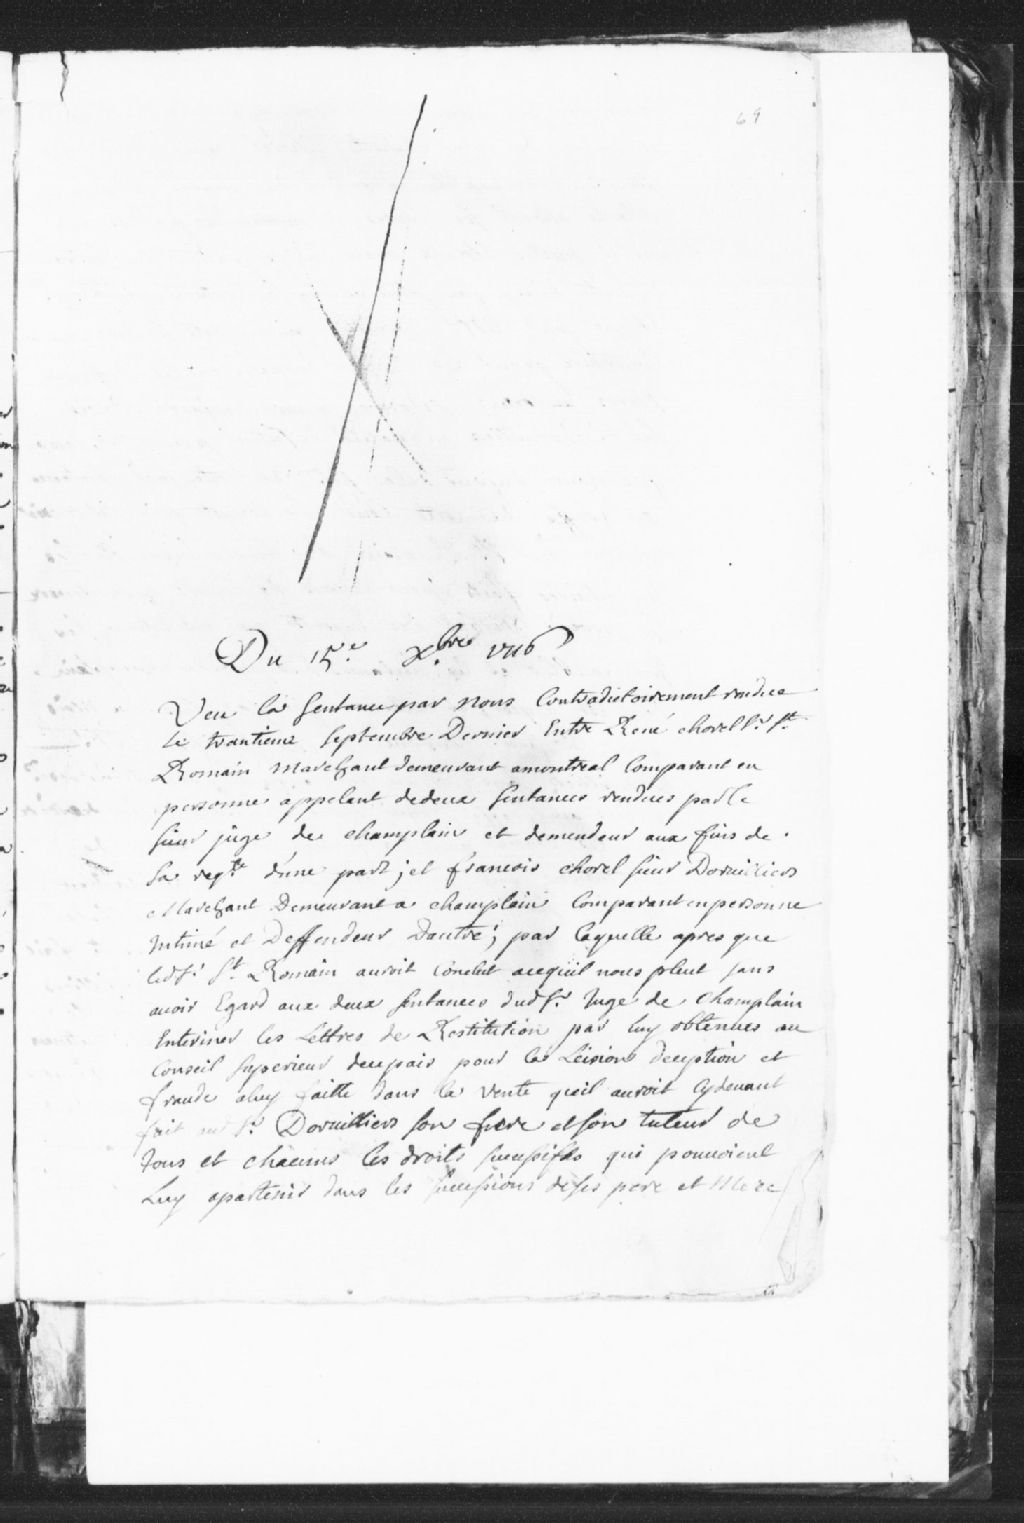 69
Du 15.e xbre 1716
Veu la Sentance par nous Contradictoirement rendue
le trantieme Septembre Dernier Entre René chorel Sr. St.
Romain Marchant demeurant amontreal Comparant en
personne appelant dedeux Sentances rendues parle
Sieur juge de champlain et demendeur aux fins de
Sa reqte d'une part; et francois chorel Sieur Dorvilliers
Marchant Demeurant a champlain Comparant enpersonne
Intimé et Deffendeur Dautre; par laquelle apres que
ledSr. St. Romain auroit Conclut acequil nous pleut sans
avoir Egard aux deux Sentances dudSr. Juge de Champlain
Enteriner les Lettres de Restitution par luy obtenues au
Conseil Superieur decepais pour la Leision deception et
fraude aluy faitte dans la vente queil auroit Cydevant
fait audSr. Dorvilliers son frere etson tuteur de
Tous et chacuns les droits Sucessifs qui pouvoient
Luy apartenir dans les Successions deses pere et Mere